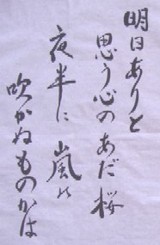 明日ありと
思う心のあだ桜
夜半に嵐の
吹かぬものかは